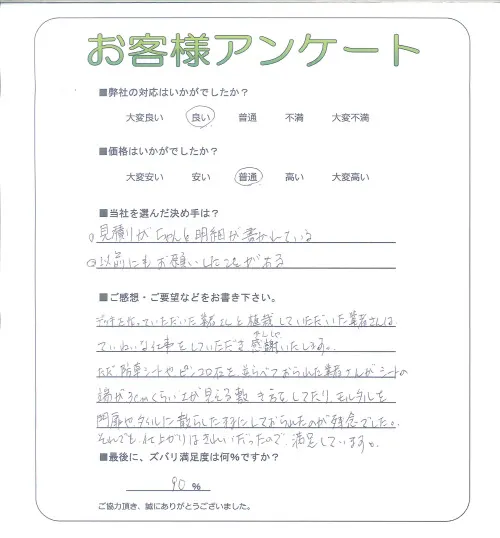 お客様アンケート
■弊社の対応はいかがでしたか？
大変良い 良い 普通 不満 大変不満
■価格はいかがでしたか？
大変安い 安い 普通 高い 大変高い
■当社を選んだ決め手は？
見積りがちゃんと明細が書かれている
以前にもお願いしたことがある
■ご感想・ご要望などをお書き下さい。
デッキを作っていただいた業者さんと植栽していただいた業者さんは
かんしゃ
ていねいな仕事をしていただき感謝いたします。
ただ防草シートやピンコロ石を並らべておられた業者さんがシートの
端が3cmくらい土が見える敷き方をしてたり、モルタルを
門扉やタイルに散らしたままにしておられたのが残念でした。
それでも仕上がりはきれいだったので、満足しています。
■最後に、ズバリ満足度は何％ですか？
90 %
ご協力頂き、誠にありがとうございました。